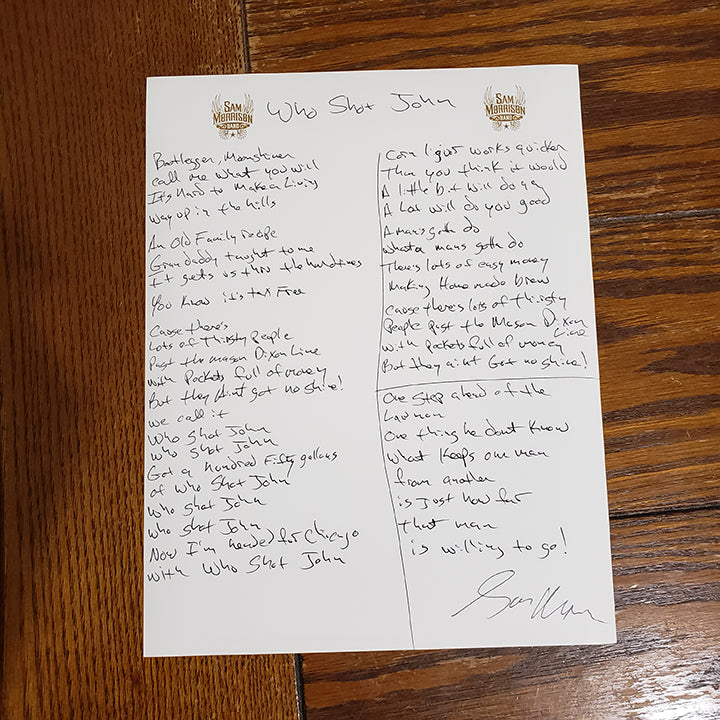 SAM
MORRISON
BAND
Who Shot John
SAM
MORRISON
BAND
Bootlegger, Moonshiner
call me what you will
It's Hard to Make a Living
way up in the hills
An Old Family recipe
Grandaddy taught to me
It gets us thru the hard times
You know it's tax Free
Cause there's
Lots of Thirsty People
Past the mason Dixon Line
with Pockets full of money
But they Aint got no shine!
we call it
Who Shot John
who shot John
Got a hundred Fifty gallons
of Who Shot John
Who shot John
who shot John
Now I'm headed for Chicago
with Who Shot John
Corn liquor works quicker
Than you think it would
A little bit will do ya
A Lot will do you good
A man's gotta do
what a mans gotta do
There's lots of easy money
Making Home made brew
Cause there's lots of thirsty
People Past the Mason Dixon
Line
with Pockets full of money
But they aint Got no shine!
One step ahead of the
Lawman
One thing he dont know
what keeps one man
from another
is Just how far
that man
is willing to go!